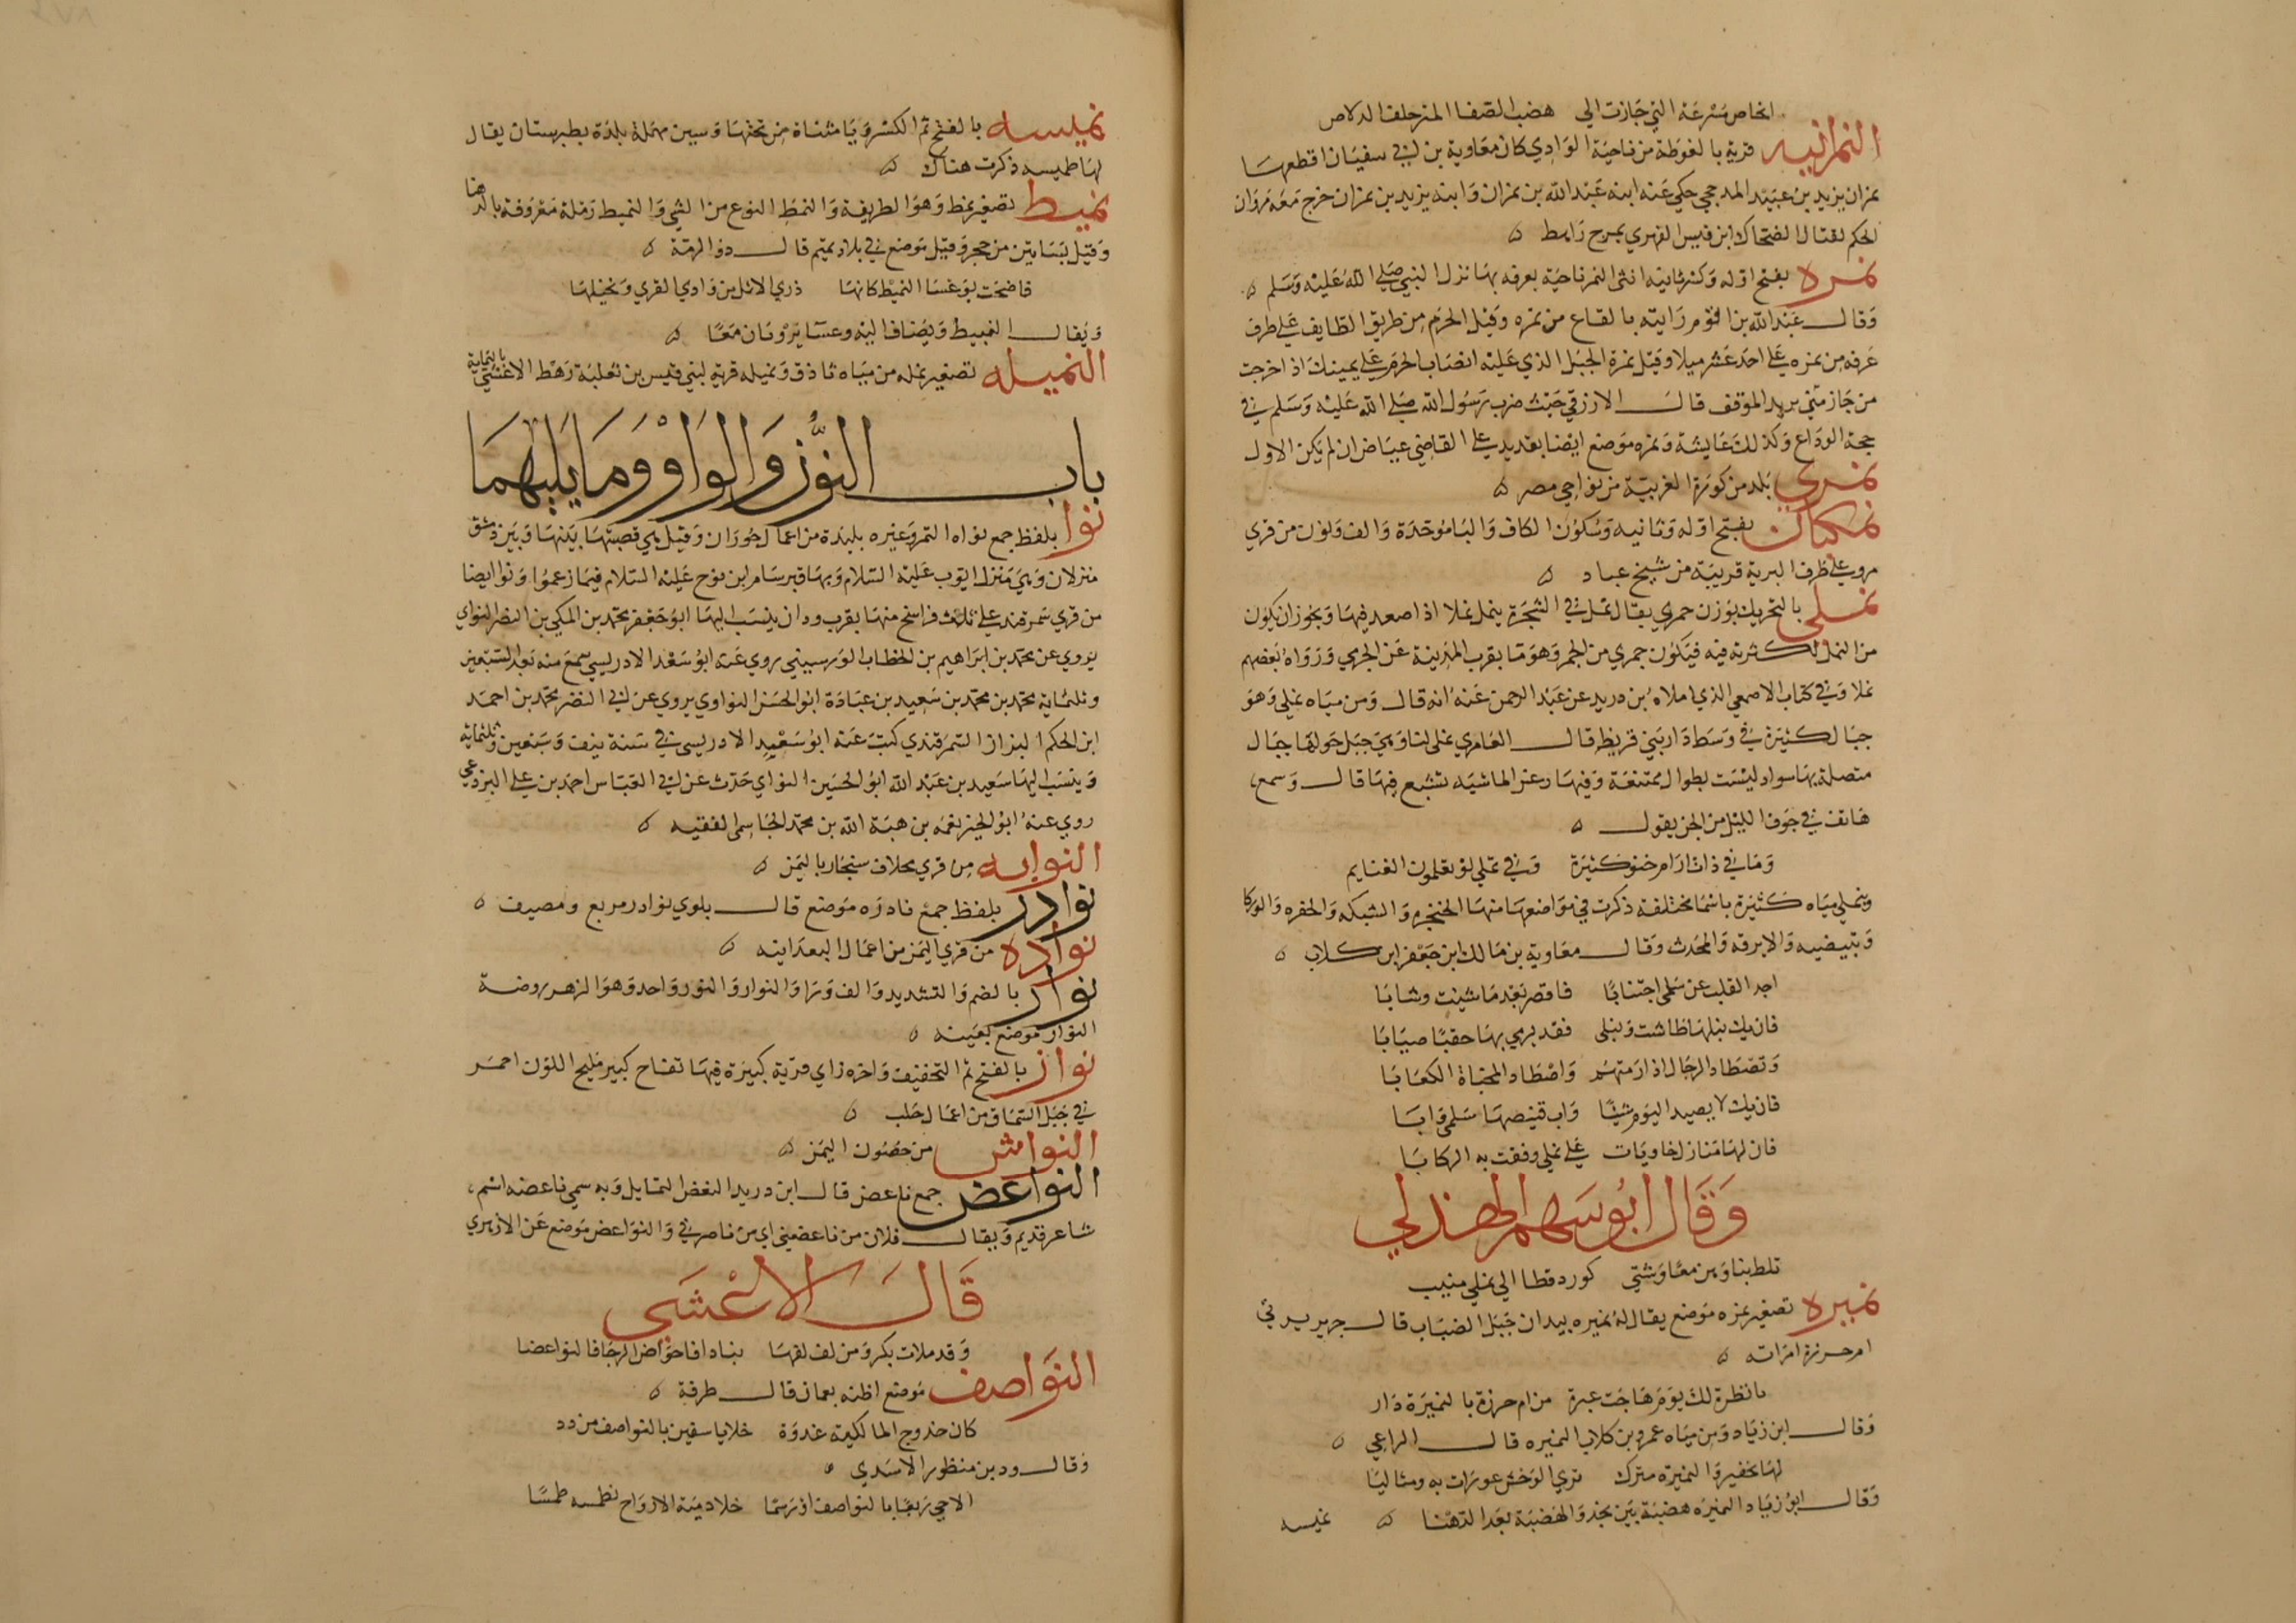 انحاص مسرعة التي جازت الي هضب الصفا المتزحلف الدلاص
النمرانيه قرية بالغوطة من ناحية الوادي كان معاوية بن ابي سفيان اقطعها
نمران يزيد بن عبيد المدحجي حكي عنه ابنه عبد الله بن نمران وابنه يزيد بن نمران خرج معه مروان
الحكم لقتال الضحاك ابن قيس الفهري بمرج راهط
نمره بفتح اوله وكسر ثانيه انثى النمر ناحية بعرفه بها نزل النبي صلى الله عليه وسلم
وقال عبد الله بن اقوم رايته بالقاع من نمره وقيل الحرم من طريق الطايف على طرف
عرفه من نمره على احد عشر ميلا وقيل نمرة الجبل الذي عليه انصاب الحرم على يمينك اذا خرجت
من جازمتي يريد الموقف قال الازرقي حيث ضرب رسول الله صلى الله عليه وسلم في
حجة الوداع وكذلك عايشة ونمره موضع ايضا بقديد على القاضي عياض ان لم يكن الاول
نمري بلد من كورة الغربية من نواحي مصر
نمكبان بفتح اوله وثانيه وسكون الكاف والبا موحدة والف ونون من قري
مرو على طرف البرية قريبة من شيخ عباد
نملى بالتحريك بوزن جمزي يقال نمل في الشجرة ينمل نملا اذا صعد فيها ويجوز ان يكون
من النمل لكثرته فيه فيكون جمزي من الجمز وهو ما بقرب المدينة عن الجرمي ورواه بعضهم
نملا وفي كتاب الاصمعي الذي املاه بن دريد عن عبد الرحمن عنه انه قال ومن مياه نملى وهو
جبال كثيرة في وسط دار بني قريظ قال العامري نملى لنا وهي جبل حولها جبال
متصلة بها سواد ليست بطوال ممتنعة وفيها رعن الماشيه تشبع فيها قال وسمع
هاتف في جوف الليل من الجن يقول
وما في ذات ارام خنو كثيرة وفي نملى لو تعلمون الغنايم
وبنملى مياه كثيرة باسما مختلفة ذكرت في مواضعها منها الخنجره والشبكه والحفره والوركا
وبتيضيه والابرقه والمحدث وقال معاوية بن مالك ابن جعفر ابن كلاب
اجد القلب عن سلمى اجتنابا فاقصر بعد ما شيبت وشابا
فان يك نبلها طاشت ونبلى فقد نرمي بها حقبا صيابا
وتصطاد الرجال اذا رمتهم واصطاد المخباة الكعابا
فان يك لا يصيد اليوم شيا واب قنيصها سلمى وابا
فان لها منازل خاويات على نملى وقفت به الركابا
وقال ابو سهم الهذلي
تلط بنا وهن معا وشتى كورد قطا الي نملى منيب
نميره تصغير نمره موضع يقال له نميره بيدان جبل الضباب قال جرير يرثي
ام حرزة امراته
يا نظرة لك يوم هاجت عبرة من ام حرزة بالنميرة دار
وقال ابن زياد ومن مياه عمرو بن كلاب النميره قال الراعي
لها بحقير والنميرة منزل تري الوحش عوذات به ومثاليا
وقال ابو زياد النميره هضبة بين نجد والهضبة بعد الدهنا
نميسه
نميسه بالفتح ثم الكسر ويا مثناة من تحتها وسين مهملة بلدة بطبرستان يقال
لها طميسه ذكرت هناك
نميط تصغير نمط وهو الطريفة والنمط النوع من الشي والنميط رملة معروفة بالدهنا
وقيل بساتين من حجر وقيل موضع في بلاد تميم قال ذو الرمة
فاضحت بوعسا النميط كانها ذري الاثل من وادي القري ونخيلها
ويقال النبيط ويضاف اليه وعسا يرويان معا
النميله تصغير نمله من مياه ثاذق ونميله قرية لبني قيس بن ثعلبة رهط الاعشى باليمامة
باب النون والواو وما يليهما
نوا بلفظ جمع نواه التمر وغيره بليدة من اعمال حوران وقيل هي قصبتها بينها وبين دمشق
منزلان وهي منزل ايوب عليه السلام وبها قبر سام ابن نوح عليه السلام فيما زعموا ونوا ايضا
من قري سمرقند على ثلث فراسخ منها بقرب ودان ينسب اليها ابو جعفر محمد بن المكي بن النضر النواي
يروي عن محمد بن ابراهيم بن الخطاب الورسيني روي عنه ابو سعد الادريسي سمع منه بعد السبعين
وثلثماية محمد بن محمد بن سعيد بن عبادة ابو الحسن النواوي يروي عن ابي النضر محمد بن احمد
ابن الحكم البزاز السمرقندي كتب عنه ابو سعيد الادريسي في سنة نيف وسبعين وثلثماية
وينسب اليها سعيد بن عبد الله ابو الحسين النواي حدث عن ابي العباس احمد بن علي البرذعي
روي عنه ابو الخير نعمه بن هبة الله بن محمد الجاسمي الفقيه
النوابه من قري مخلاف سنجار باليمن
نوادر بلفظ جمع نادره موضع قال بلوي نوادر مربع ومصيف
نوادة من قري اليمن من اعمال البعدانيه
نوار بالضم والتشديد والف ورا والنوار والنور واحد وهو الزهر روضة
النوار موضع بعينه
نواز بالفتح ثم التخفيف واخره زاي قرية كبيرة فيها تفاح كبير مليح اللون احمر
في جبل السماق من اعمال حلب
النواش من حصون اليمن
النواعض جمع ناعض قال ابن دريد النغض التمايل وبه سمي ناعضه اسم
شاعر قديم ويقال فلان من ناعضيتي اي من ناصرتي والنواعض موضع عن الازهري
قال الاعشى
وقد ملات بكر ومن لف لفها نباكا فاحواض الرجا فالنواعضا
النواصف موضع اظنه بعمان قال طرفة
كان حدوج المالكية غدوة خلايا سفين بالنواصف من دد
وقال ود بن منظور الاسدي
الاحي ربعا بالنواصف او رسما خلا دمنة الارواح تطمسه طمسا